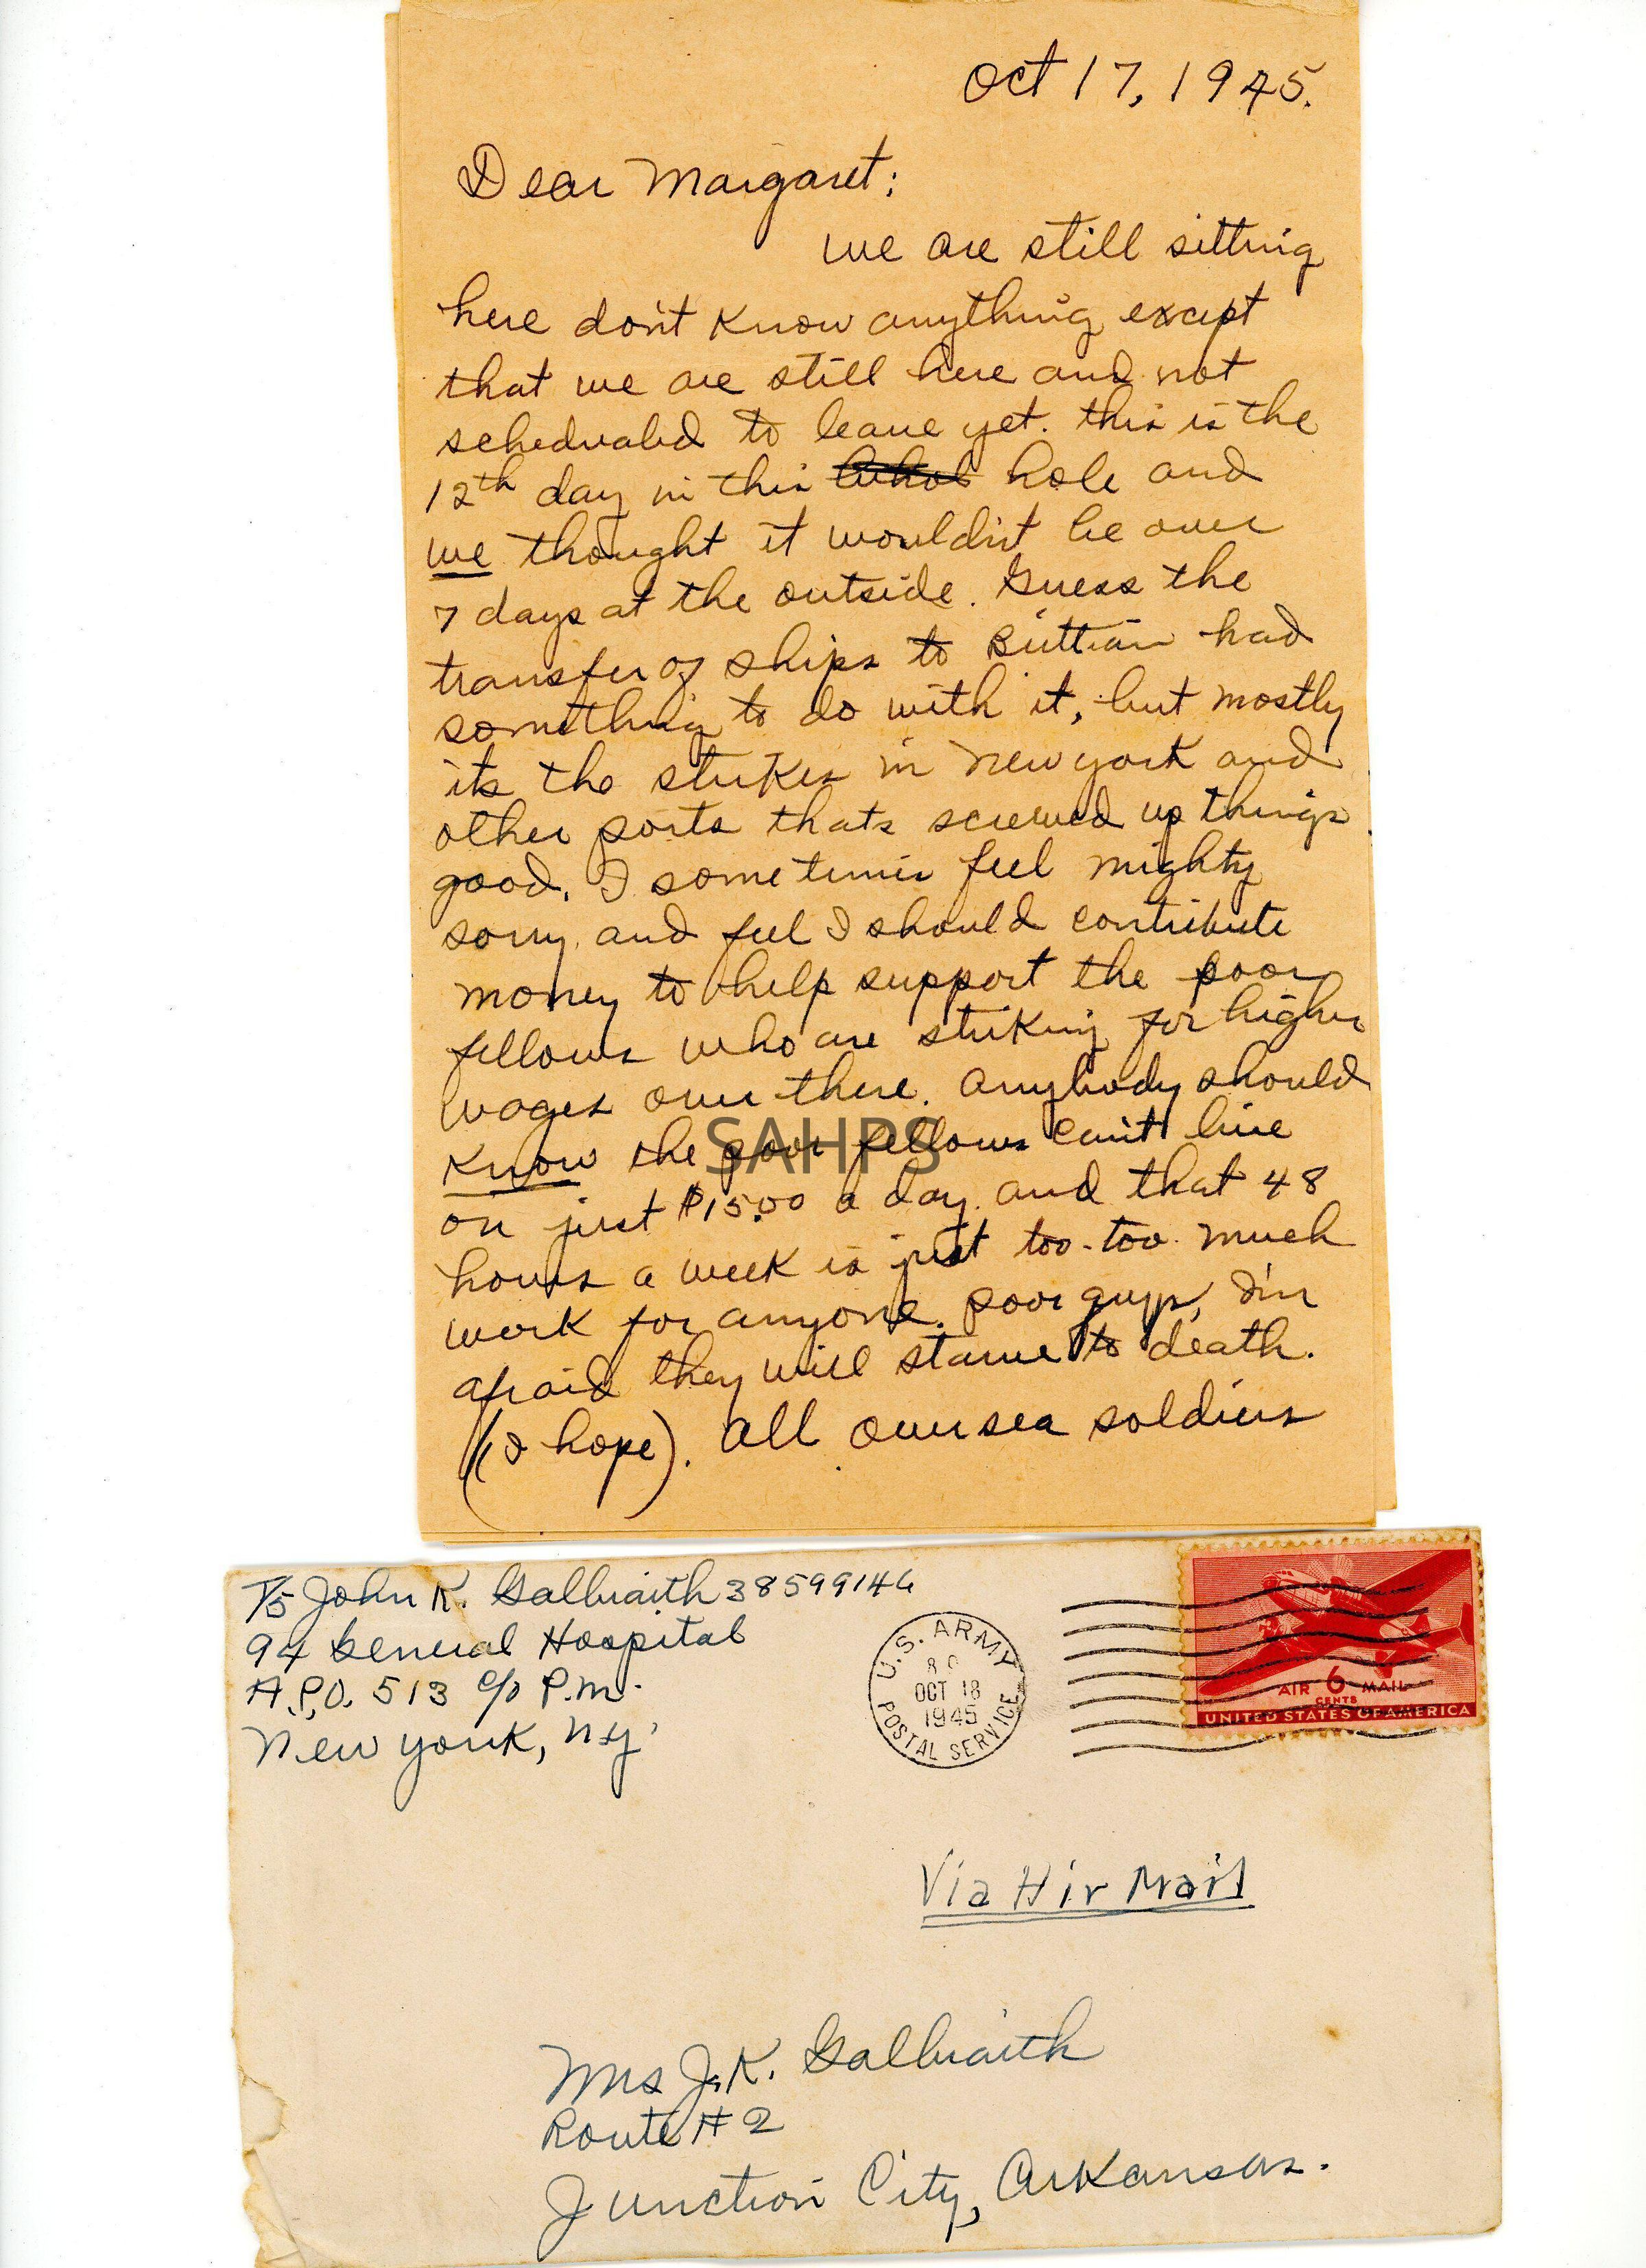 Oct 17, 1945.
Dear Margaret:
we are still sitting
here don't know anything except
that we are still here and not
schedualed to leave yet. this is the
12th day in this hole and
we thought it wouldn't be over
7 days at the outside. Guess the
transfer of ships to Brittian had
something to do with it, but mostly
its the strikes in New york and
other ports thats screwed up things
good. I sometimes feel mighty
sorry and feel I should contribute
money to help support the poor
fellows who are striking for higher
wages over there. Anybody should
know the poor fellows can't live
on just $15.00 a day and that 48
hours a week is just too-too much
work for anyone. poor guys, I'm
afraid they will starve to death.
(I hope). All oversea soldiers
SAHPS
T/5 John K. Galbraith 38599146
94 General Hospital
A.P.O. 513 c/o P.M.
New york, ny.
U.S. ARMY
OCT 18
1945
POSTAL SERVICE
AIR 6 MAIL
CENTS
UNITED STATES OF AMERICA
Via Air Mail
Mrs J.K. Galbraith
Route # 2
Junction City, Arkansas.